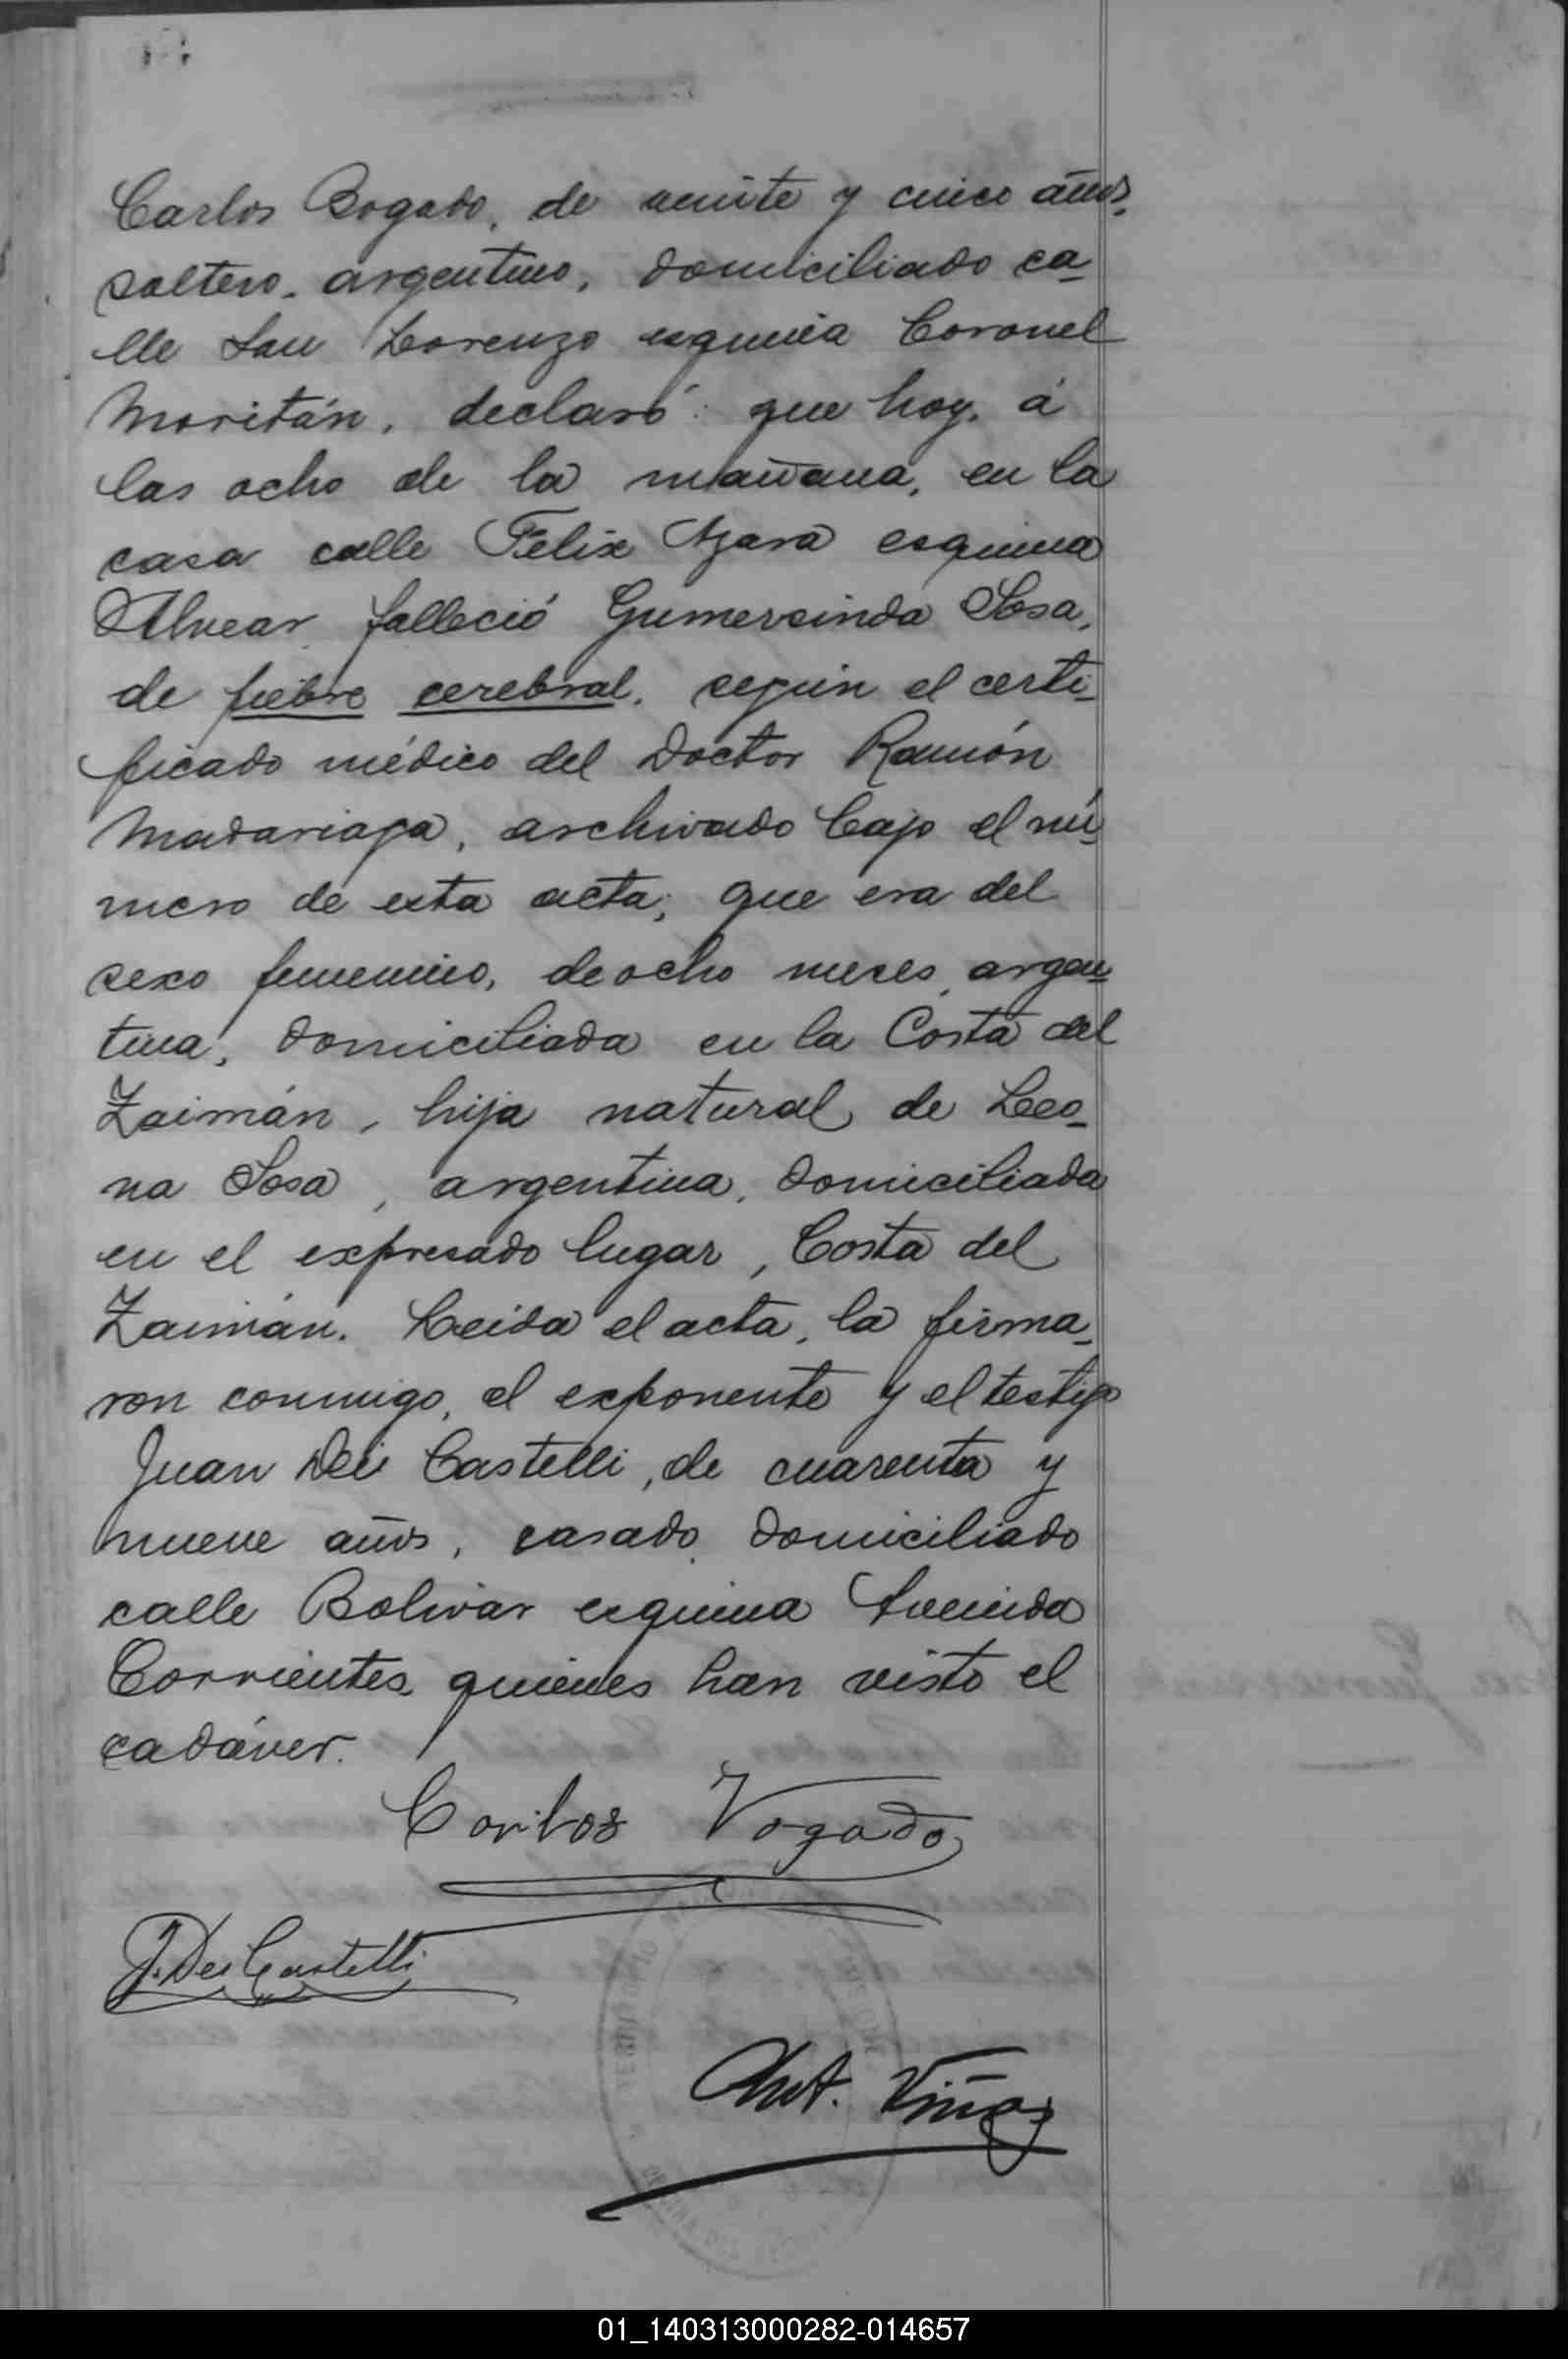 Carlos Bogado, de veinte y cinco años,
soltero, argentino, domiciliado ca-
lle San Lorenzo esquina Coronel
Moritán, declaró: que hoy, á
las ocho de la mañana, en la
casa calle Felix Azara esquina
Alvear, falleció Gumersinda Sosa,
de fiebre cerebral, según el certi-
ficado médico del Doctor Ramón
Madariaga, archivado bajo el nú-
mero de esta acta; que era del
sexo femenino, de ocho meses, argen-
tina, domiciliada en la Costa del
Zaimán, hija natural de Leo-
na Sosa, argentina, domiciliada
en el expresado lugar, Costa del
Zaimán. Leída el acta, la firma-
ron conmigo, el exponente y el testigo
Juan Dei Castelli, de cuarenta y
nueve años, casado, domiciliado
calle Bolivar esquina Avenida
Corrientes, quienes han visto el
cadáver.
Carlos Vogado
J. Dei Castelli
Ant. Viñas
01_140313000282-014657